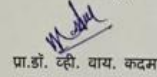 प्रा.डॉ. व्ही. वाय. कदम